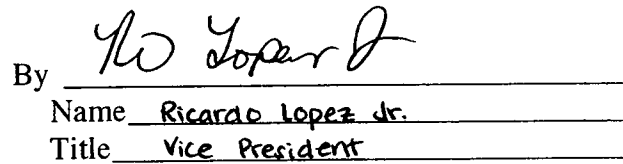 By Lopez Jr
Name Ricardo Lopez Jr.
Title Vice President